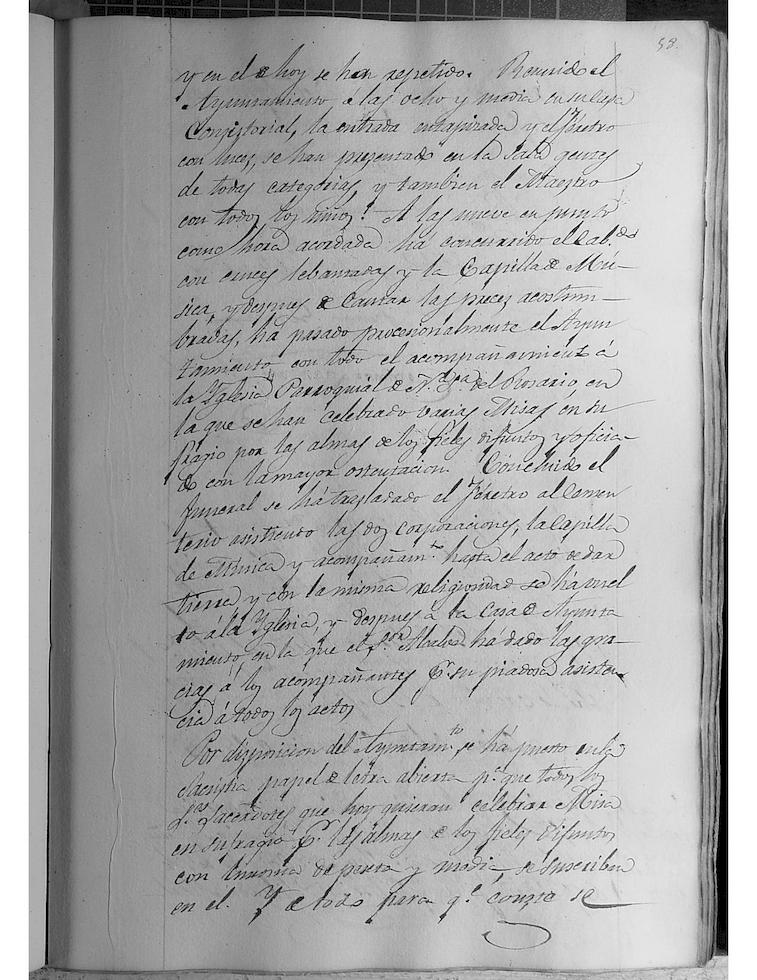 58.
y en el de hoy se han repetido. Reunido el
Ayuntamiento á las ocho y media en su casa
Consistorial, la entrada entapizada y el Féretro
con luces, se han presentado en la Sala gentes
de todas categorias, y tambien el Maestro
con todos los niños. A las nueve en punto
como hora acordada ha concurrido el Cab.do
con cruces lebantadas y la Capilla de Mú-
sica, y despues de Cantar las preces acostum-
bradas, ha pasado procesionalmente el Ayun
tamiento con todo el acompañamiento á
la Yglesia Parroquial de N.ª S.ª del Rosario, en
la que se han celebrado varias Misas en su
fragio por las almas de los fieles difuntos y oficia-
do con la mayor ostentacion. Concluido el
funeral se há trasladado el Féretro al Cemen
terio asistiendo las dos corporaciones, la Capilla
de Música y acompañam.to hasta el acto de dar
tierra, y con la misma religiosidad se há vuel
to á la Yglesia, y despues á la Casa de Ayunta
miento, en la que el S.or Alcalde há dado las gra-
cias á los acompañantes p.r su piadosa asisten
cia á todos los actos
Por disposicion del Ayuntam.to se há puesto en la
Sacristia papel de letra abierta p.ª que todos los
S.res Sacerdotes que hoy quieran celebrar Misa
en sufragio p.r las almas de los fieles difuntos
con limosna de peseta y media se suscriban
en el. Y de todo para q.e conste se